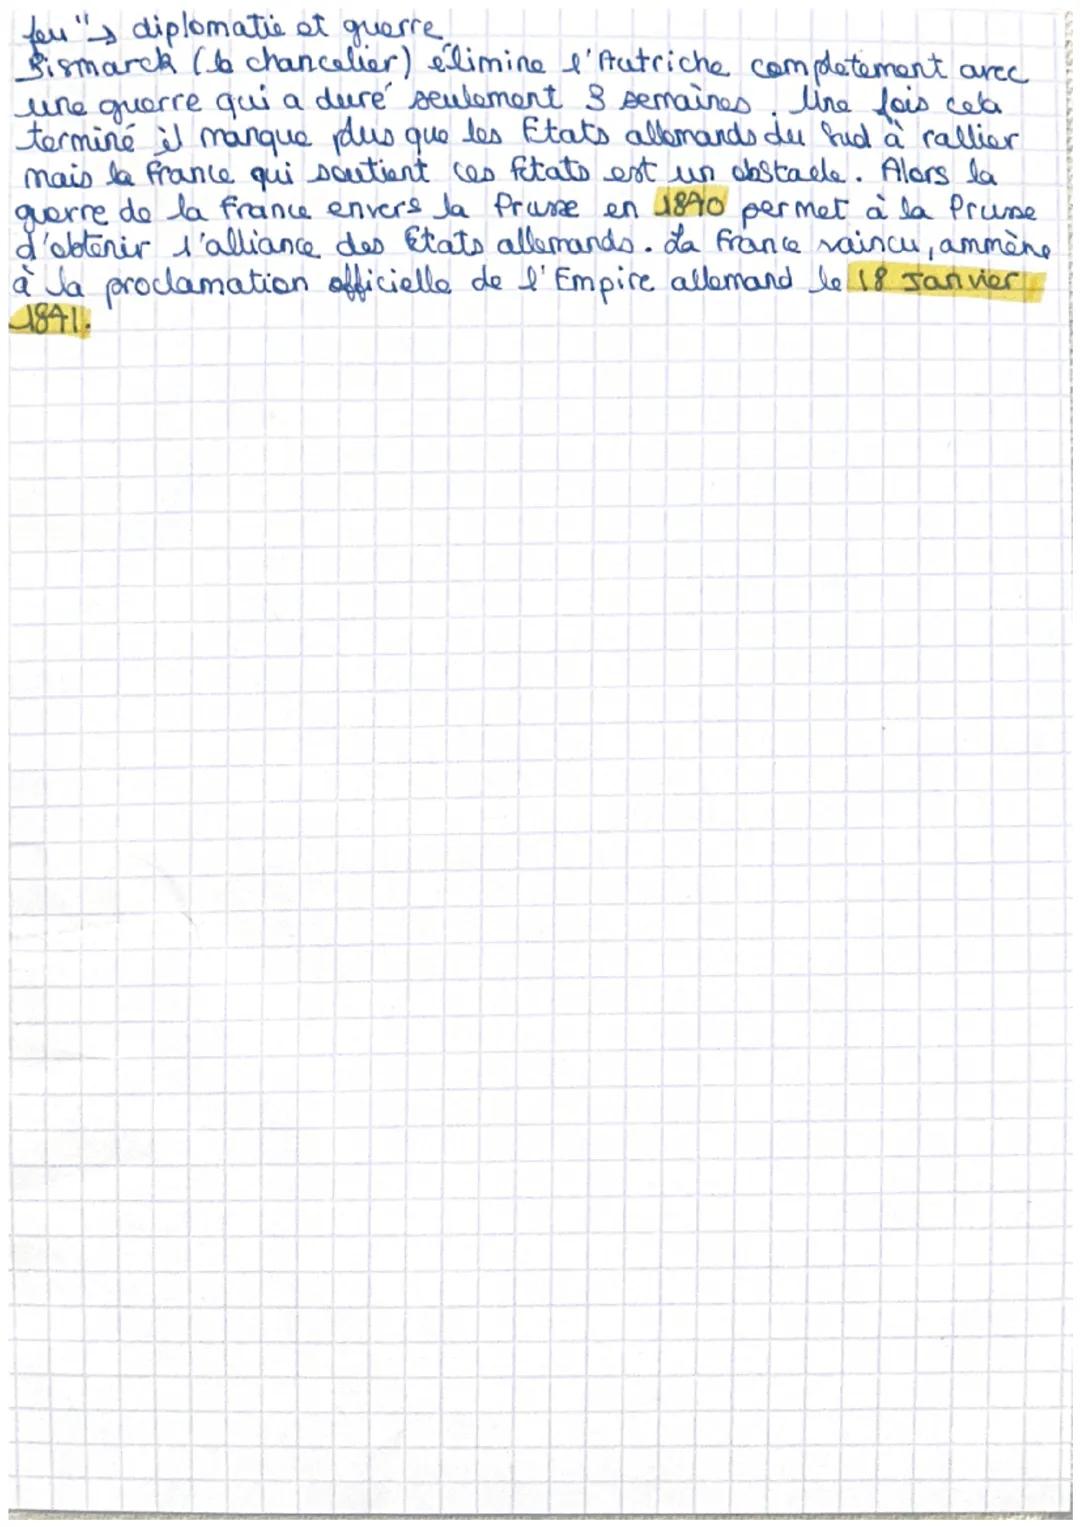 feu"→ diplomatie et guerre
Bismarck (le chancelier) élimine l'Autriche completement avec
une guerre qui a duré seulement 3 semaines. Une fois cela
terminé il manque plus que les Etats allemands du Sud à rallier
mais la France qui soutient ces Etats est un obstacle. Alors la
guerre de la France envers la Prusse en 1870 permet à la Prusse
d'obtenir l'alliance des Etats allemands. La France vaincu, ammène
à la proclamation officielle de l'Empire allemand le 18 Janvier
1871.